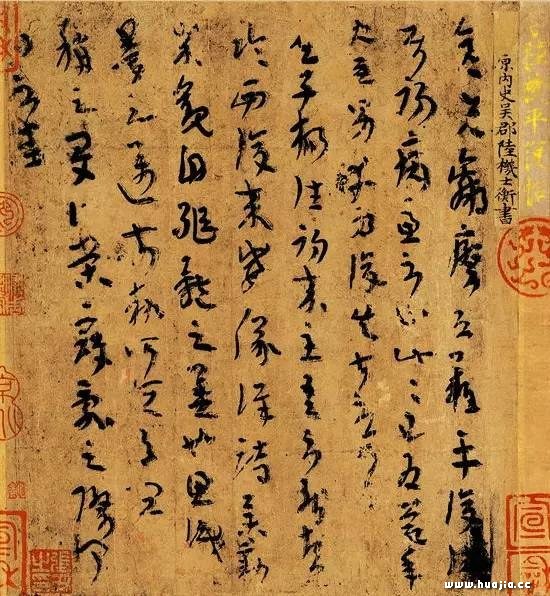 晉陸機平復帖
原內史吳郡陸機士衡書
彥先羸瘵恐難平復往
屬初病慮不止此此已為慶承
使唯男幸為復失前憂耳
子楊往初來主吾不能盡
臨西復來威儀詳跱舉動
成觀自軀體之美也思識
量之邁前執所恒有宜
稱之夏伯榮寇亂之際聞
問不悉
www.huajia.cc